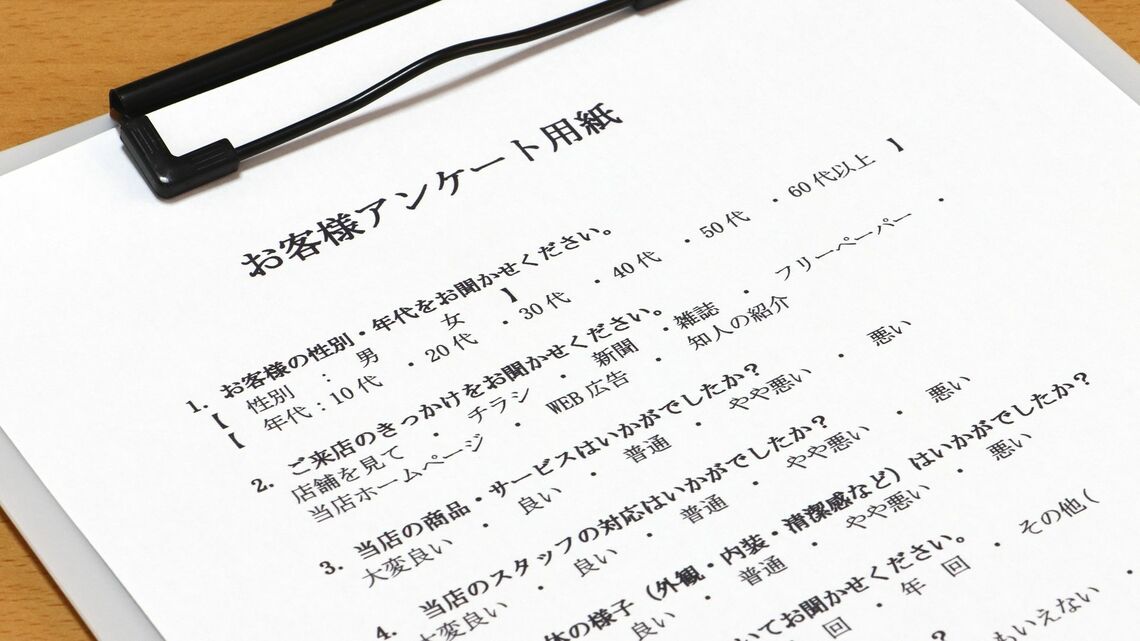 お客様アンケート用紙
1. お客様の性別・年代をお聞かせください。
【 性別 : 男 女 】
【 年代:10代 ・20代 ・30代 ・40代 ・50代 ・60代以上 】
2. ご来店のきっかけをお聞かせください。
店舗を見て ・ チラシ ・ 新聞 ・雑誌 ・ フリーペーパー ・
当店ホームページ ・ WEB広告 ・ 知人の紹介
3. 当店の商品・サービスはいかがでしたか?
大変良い ・ 良い ・ 普通 ・ やや悪い ・ 悪い
4. 当店のスタッフの対応はいかがでしたか?
大変良い ・ 良い ・ 普通 ・ やや悪い ・ 悪い
体の様子(外観・内装・清潔感など)はいかがでしたか?
良い ・ 普通 ・ やや悪い ・ 悪い
いてお聞かせください。
回 ・ 年 回 ・ その他(
か?
もいえない ・